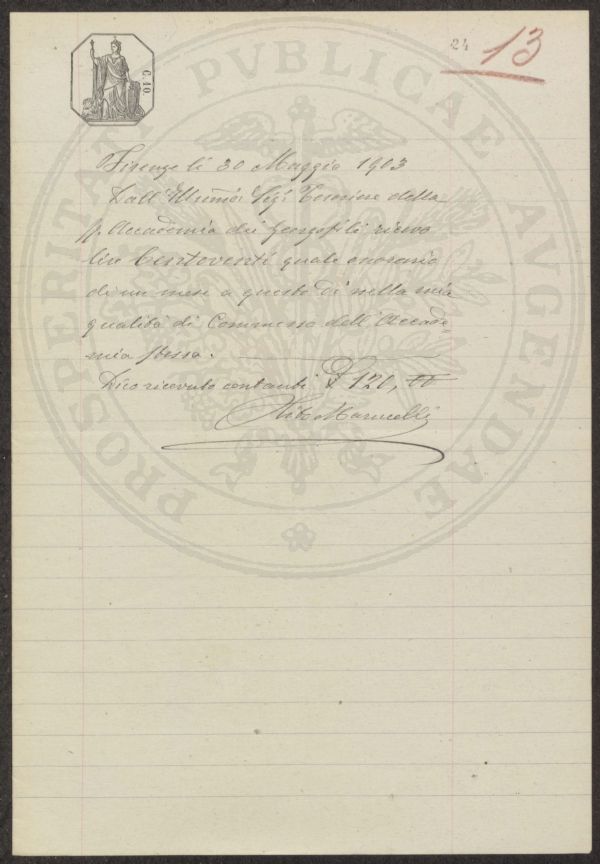 C. 10.
24 13
PROSPERITATI PVBLICAE AVGENDAE
Firenze li 30 Maggio 1903
Dall' Illmo Sigr Economo della
R. Accademia dei Georgofili ricevo
lire Centoventi quale onorario
di un mese a questo dì nella mia
qualità di Commesso dell' Accade-
mia stessa.
Dico ricevuto contanti £ 120, 00
Marucelli